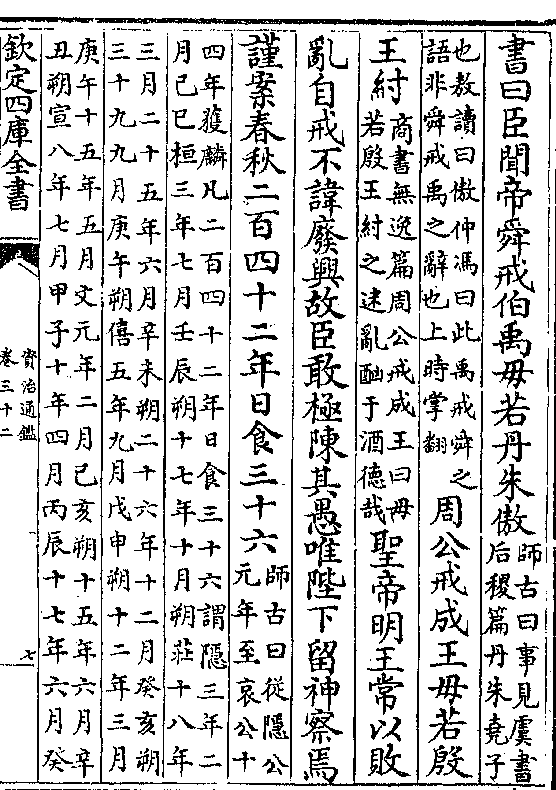 書曰臣聞帝舜戒伯禹毋若丹朱傲
師古曰事見虞書
后稷篇丹朱堯子
也敖讀曰傲仲馮曰此禹戒舜之
語非舜戒禹之辭也上時掌翻
周公戒成王毋若殷
王紂
商書無逸篇周公戒成王曰毋
若殷王紂之迷亂酗于酒德哉
聖帝明王常以敗
亂自戒不諱廢興故臣敢極陳其愚唯陛下留神察焉
謹案春秋二百四十二年日食三十六
師古曰從隱公
元年至哀公十
四年獲麟凡二百四十二年日食三十六謂隱三年二
月己巳桓三年七月壬辰朔十七年十月朔莊十八年
三月二十五年六月辛未朔二十六年十二月癸亥朔
三十九九月庚午朔僖五年九月戊申朔十二年三月
庚午十五年五月文元年二月己亥朔十五年六月辛
丑朔宣八年七月甲子十年四月丙辰十七年六月癸
欽定四庫全書
資治通鑑
卷三十二
七